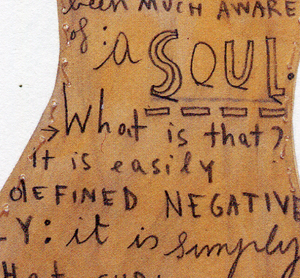 been MUCH AWARE
of: a SOUL.
→What is that?
it is easily
dEFINED NEGATIVE
-Y: it is simply